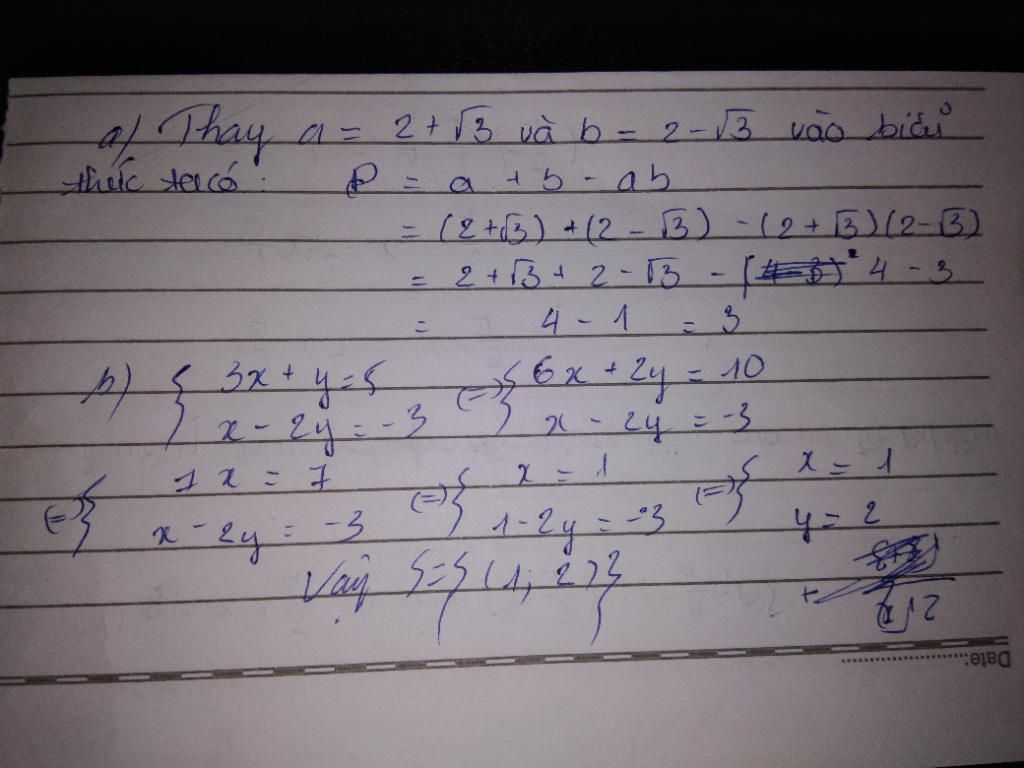 a) Thay a = 2 + √3 và b = 2 - √3 vào biểu
thức ta có: P = a + b - ab
= (2 + √3) + (2 - √3) - (2 + √3)(2 - √3)
= 2 + √3 + 2 - √3 - 4 - 3
= 4 - 1 = 3
b) { 3x + y = 5 (=) { 6x + 2y = 10
x - 2y = -3 x - 2y = -3
(=) { 7x = 7 (=) { x = 1 (=) { x = 1
x - 2y = -3 1 - 2y = -3 y = 2
Vậy S = { (1; 2) }
Date: